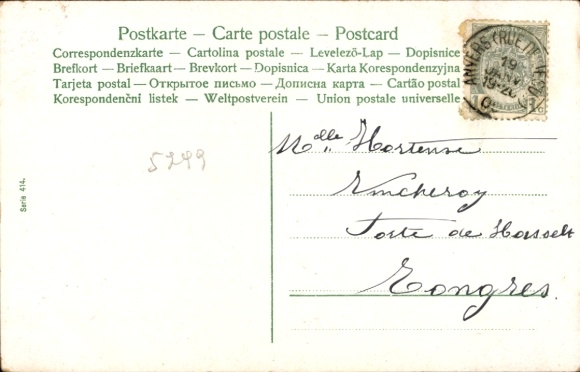 Postkarte — Carte postale — Postcard
Correspondenzkarte — Cartolina postale — Levelező-Lap — Dopisnice
Brefkort — Briefkaart — Brevkort — Dopisnica — Karta Korespondenzyjna
Tarjeta postal — Открытое письмо — Дописна карта — Cartão postal
Korespondenční listek — Weltpostverein — Union postale universelle
19
5249
Mdlle Hortense
Vincheroy
Porte de Hasselt
Tongres
Serie 414.